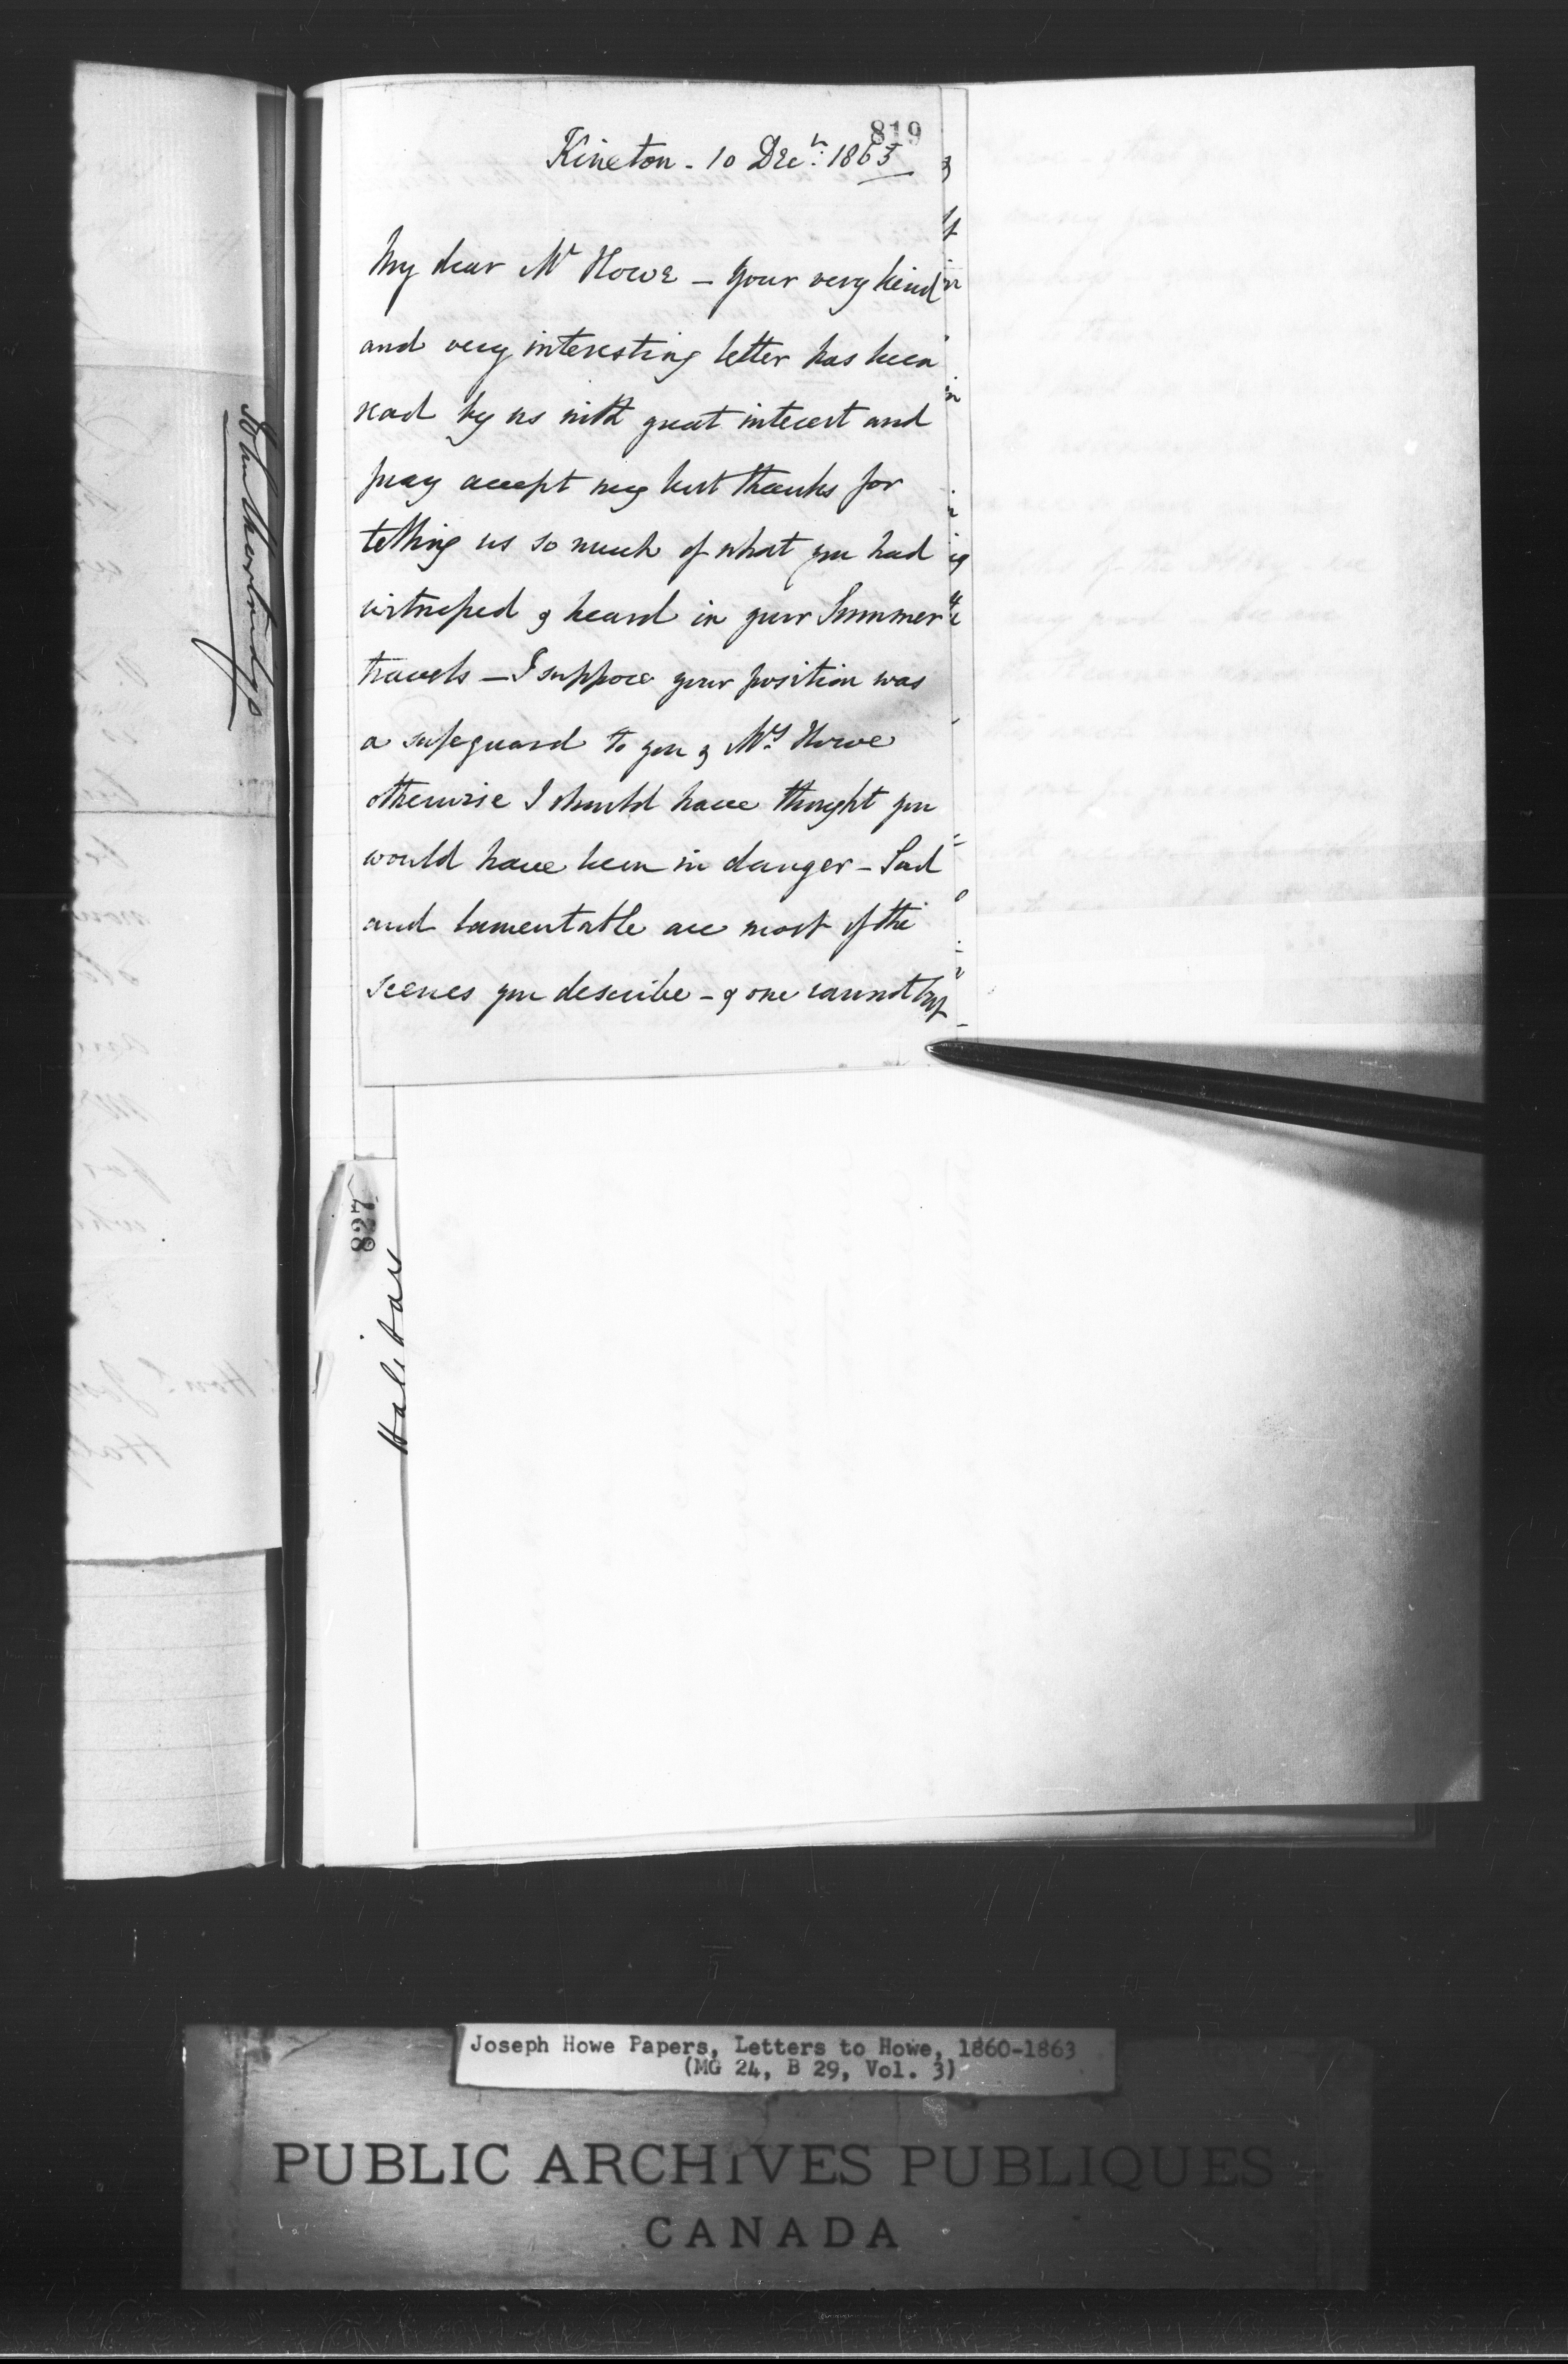 819
Kineton - 10 Decr. 1863
My dear Mr Howe - Your very kind
and very interesting letter has been
read by us with great interest and
pray accept my best thanks for
telling us so much of what you had
witnessed & heard in your Summer
travels - I suppose your position was
a safeguard to you & Mrs. Howe
otherwise I should have thought you
would have been in danger - Sad
and lamentable are most of the
scenes you describe - & one cannot but
827
Joseph Howe Papers, Letters to Howe, 1860-1863
(MG 24, B 29, Vol. 3)
PUBLIC ARCHIVES PUBLIQUES
CANADA